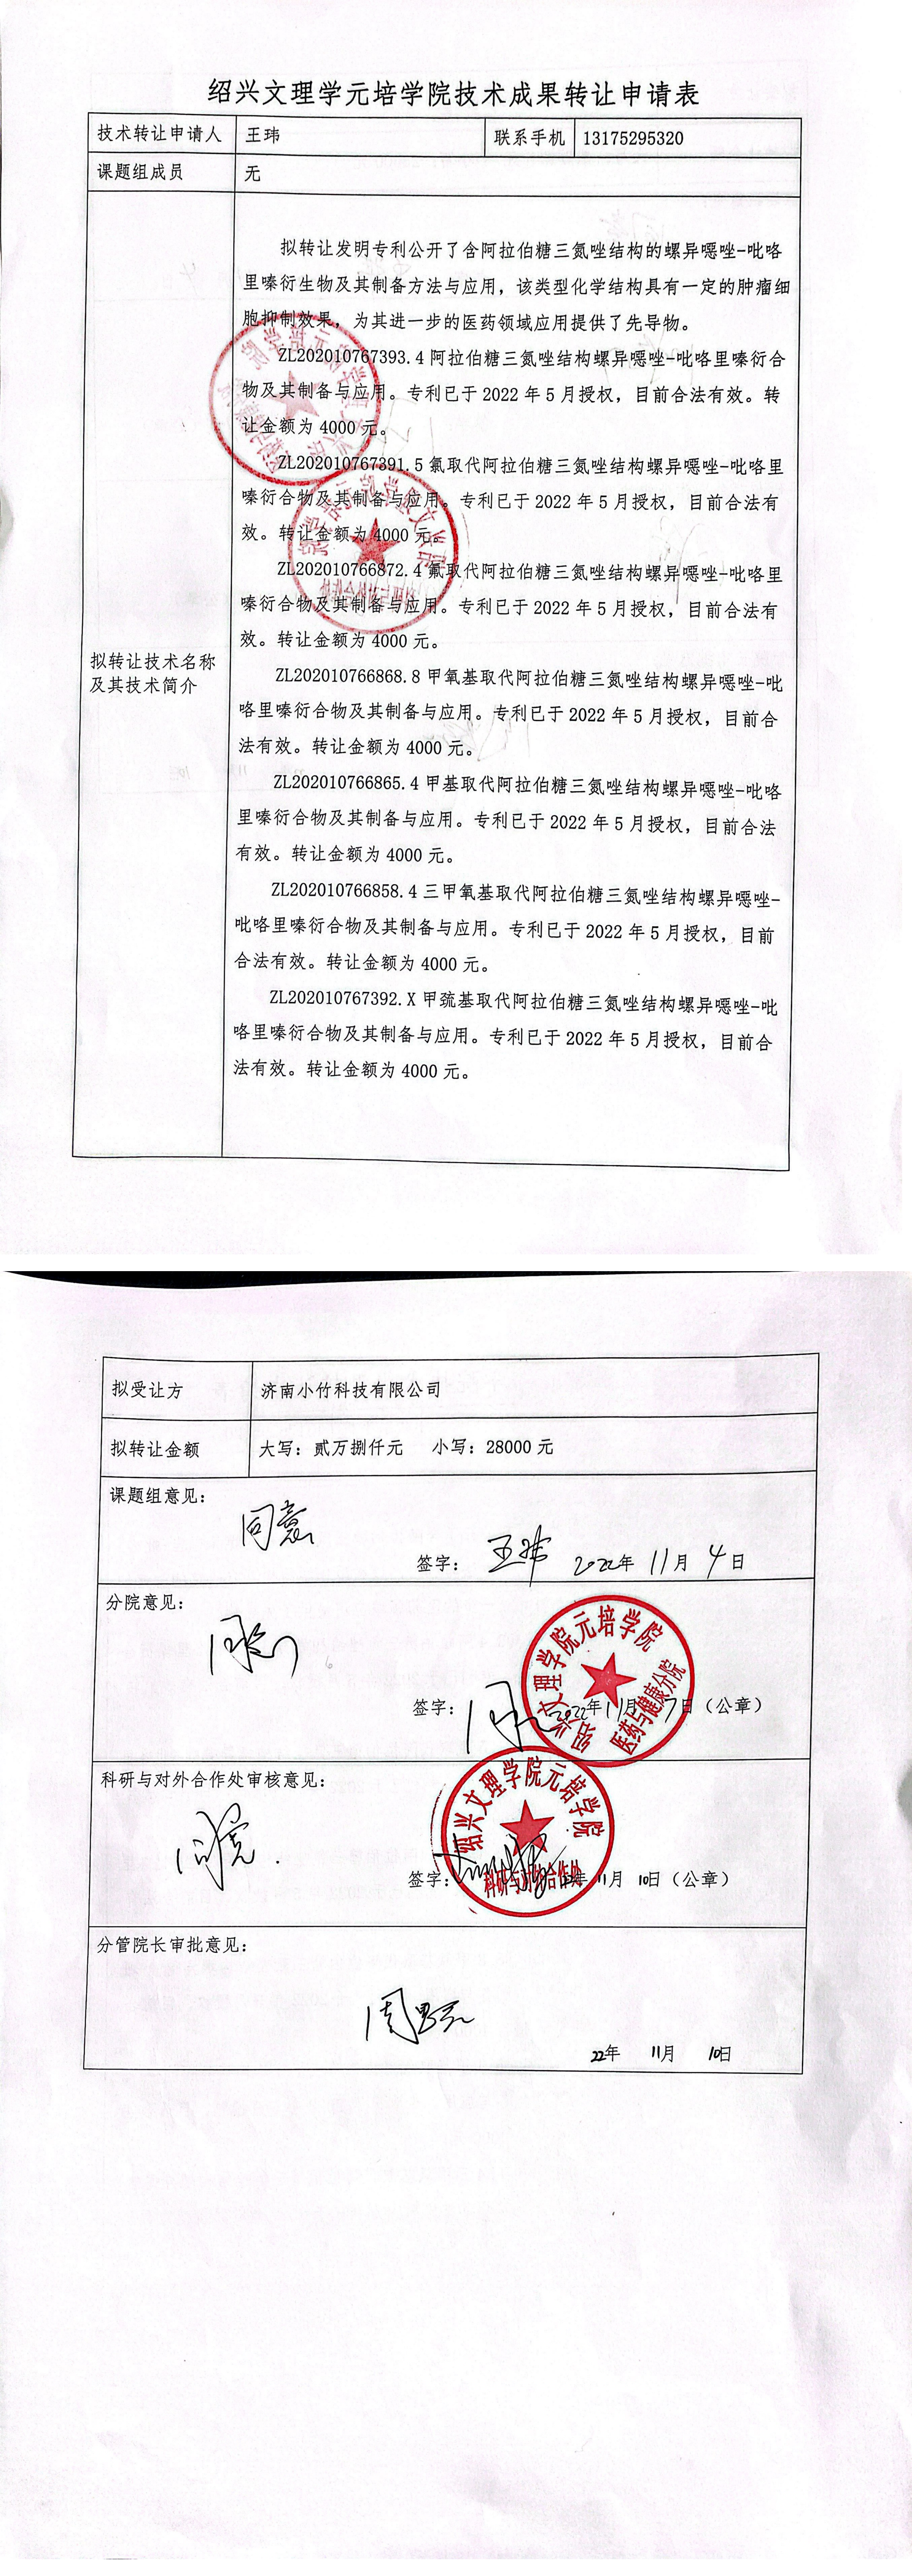 绍兴文理学元培学院技术成果转让申请表
技术转让申请人 王玮 联系手机 13175295320
课题组成员 无
拟转让技术名称
及其技术简介
拟转让发明专利公开了含阿拉伯糖三氮唑结构的螺异噁唑-吡咯
里嗪衍生物及其制备方法与应用，该类型化学结构具有一定的肿瘤细
胞抑制效果，为其进一步的医药领域应用提供了先导物。
ZL202010767393.4 阿拉伯糖三氮唑结构螺异噁唑-吡咯里嗪衍合
物及其制备与应用。专利已于 2022 年 5 月授权，目前合法有效。转
让金额为 4000 元。
ZL202010767391.5 氯取代阿拉伯糖三氮唑结构螺异噁唑-吡咯里
嗪衍合物及其制备与应用。专利已于 2022 年 5 月授权，目前合法有
效。转让金额为 4000 元。
ZL202010766872.4 氟取代阿拉伯糖三氮唑结构螺异噁唑-吡咯里
嗪衍合物及其制备与应用。专利已于 2022 年 5 月授权，目前合法有
效。转让金额为 4000 元。
ZL202010766868.8 甲氧基取代阿拉伯糖三氮唑结构螺异噁唑-吡
咯里嗪衍合物及其制备与应用。专利已于 2022 年 5 月授权，目前合
法有效。转让金额为 4000 元。
ZL202010766865.4 甲基取代阿拉伯糖三氮唑结构螺异噁唑-吡咯
里嗪衍合物及其制备与应用。专利已于 2022 年 5 月授权，目前合法
有效。转让金额为 4000 元。
ZL202010766858.4 三甲氧基取代阿拉伯糖三氮唑结构螺异噁唑-
吡咯里嗪衍合物及其制备与应用。专利已于 2022 年 5 月授权，目前
合法有效。转让金额为 4000 元。
ZL202010767392.X 甲巯基取代阿拉伯糖三氮唑结构螺异噁唑-吡
咯里嗪衍合物及其制备与应用。专利已于 2022 年 5 月授权，目前合
法有效。转让金额为 4000 元。
拟受让方 济南小竹科技有限公司
拟转让金额 大写：贰万捌仟元 小写：28000 元
课题组意见：
同意
签字： 王玮 2022年 11月 4日
分院意见：
同意
绍兴文理学院元培学院
医药与健康分院
签字： 2022年11月7日（公章）
科研与对外合作处审核意见：
同意.
绍兴文理学院元培学院
科研与对外合作处
签字： 22年 11月 10日（公章）
分管院长审批意见：
22年 11月 10日